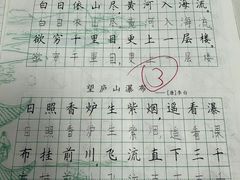 白日依山尽,黄河入海流。
白日依山尽 黄河入海流
欲穷千里目,更上一层楼。
欲穷千里目 更上一层楼
3
望庐山瀑布
[唐]李白
日照香炉生紫烟,遥看瀑
日照香炉生紫烟 遥看瀑
布挂前川 飞流直下三千